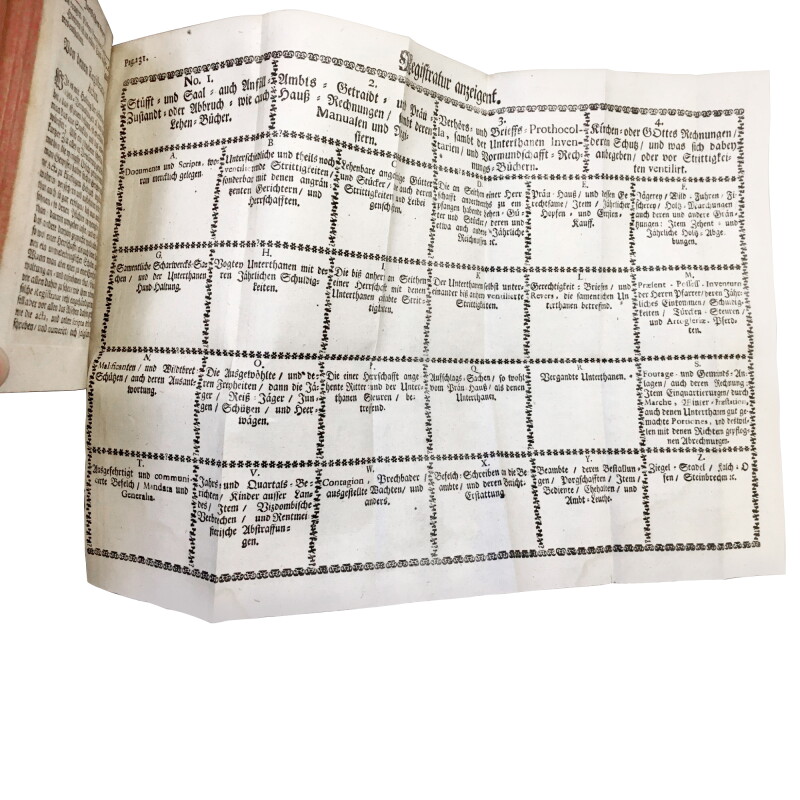 Pag. 131.
Registratur anzeigent.
No. 1.
Stüfft- und Saal- auch Anfäll-
Zustandt- oder Abbruch- wie auch
Lehen-Bücher.
2.
Ambts- Getraidt- und Bräu-
Hauß-Rechnungen / sambt deren
Manualen und
stern.
3.
Verhörs- und Brieffs-Prothocol-
la, sambt der Unterthanen Inven-
tarien / und Vormundschafft-Rech-
nungs-Büchern.
4.
Kirchen- oder GOttes Rechnungen /
deren Schutz / und was sich dabey
anbegeben / oder vor Strittigkei-
ten ventilirt.
A.
Documenta und Scripta, wor-
ran merklich gelegen.
B.
Unterschidliche und theils noch
Strittigkeiten /
sonderbar mit denen angrän-
tzenten Gerichtern / und
Herrschafften.
Lehenbare Gütter
und Stücker / auch deren
Strittigkeiten und Leibei-
genschafft.
D.
Die an Seithen einer Herr-
zu em-
pfangen habende Lehen-Gü-
ter und Stücke / deren und
etwa auch andere Jährliche
Reichnussen ꝛc.
E.
Präu-Hauß / und dessen Ge-
rechtsame / Item / Jährlicher
Hopfen- und Gersten-
Kauff.
F.
Jägerey / Wild-Fuhren / Fi-
scherey / Holtz-Marchungen
auch deren und andere Grän-
tzungen / Item Zehent- und
Jährliche Holtz-Abge-
bungen.
G.
Samentliche Scharwercks-Sa-
chen / und der Unterthanen
Hund-Haltung.
H.
Vogtey Unterthanen mit de-
ren Jährlichen Schuldig-
keiten.
I.
Die biß anhero an Seithen
einer Herrschafft mit denen
Unterthanen Stritt-
tigkeiten.
K.
Der Unterthanen selbst unter-
einander biß anhero ventilirte
Strittigkeiten.
L.
Gerechtigkeit-Brieffe / und
Revers, die samentlichen Un-
terthanen betreffend.
M.
Præsent- Possess- Inventuren
der Herrn Pfarrer / deren Jähr-
liches Einkommen / Schuldig-
keiten / Steuren /
und Artoglerie-Pferd-
ten.
N.
Malificanten / und Wildbret-
Schützen / auch deren Ausant-
wortung.
O.
Die Ausgewöhlte / und de-
ren Freyheiten / dann die Jä-
ger / Reiß-Jäger / Jun-
gen / Schützen / und Heer-
wägen.
P.
Die einer Herrschafft ange-
hente Ritter- und der Unter-
thanen Steuren / be-
treffend.
Q.
Aufschlags-Sachen / so wohl
vom Präu-Hauß / als denen
Unterthanen.
R.
Vergandte Unterthanen.
S.
Fourage- und Gemeinds-An-
lagen / auch deren Rechnung.
Item Einquartierungen / durch
Marche, Winter-Præstation,
auch denen Unterthanen gut ge-
machte Portiones, und deswi-
len mit denen Richten gepflog-
nen Abrechnungen.
T.
Ausgefertigt und communi-
cirte Befelch / Mandata und
Generalia.
V.
Jahrs- und Quartals-Be-
richten / Kinder ausser Lan-
des / Item / Vizdombische
Verbrechen / und Rentmei-
sterische Abstraffun-
gen.
W.
Contagion, Prechbader
ausgestellte Wachten / und
anders.
X.
Befelch-Schreiben an die Be-
ambte / und deren Bricht-
Erstattung.
Y.
Beambte / deren Bestallun-
gen / Porgschafften / Item /
Bediente / Ehehalten / und
Ambt-Leuthe.
Z.
Ziegel-Stadel / Kalch-O-
fen / Steinbrechen ꝛc.